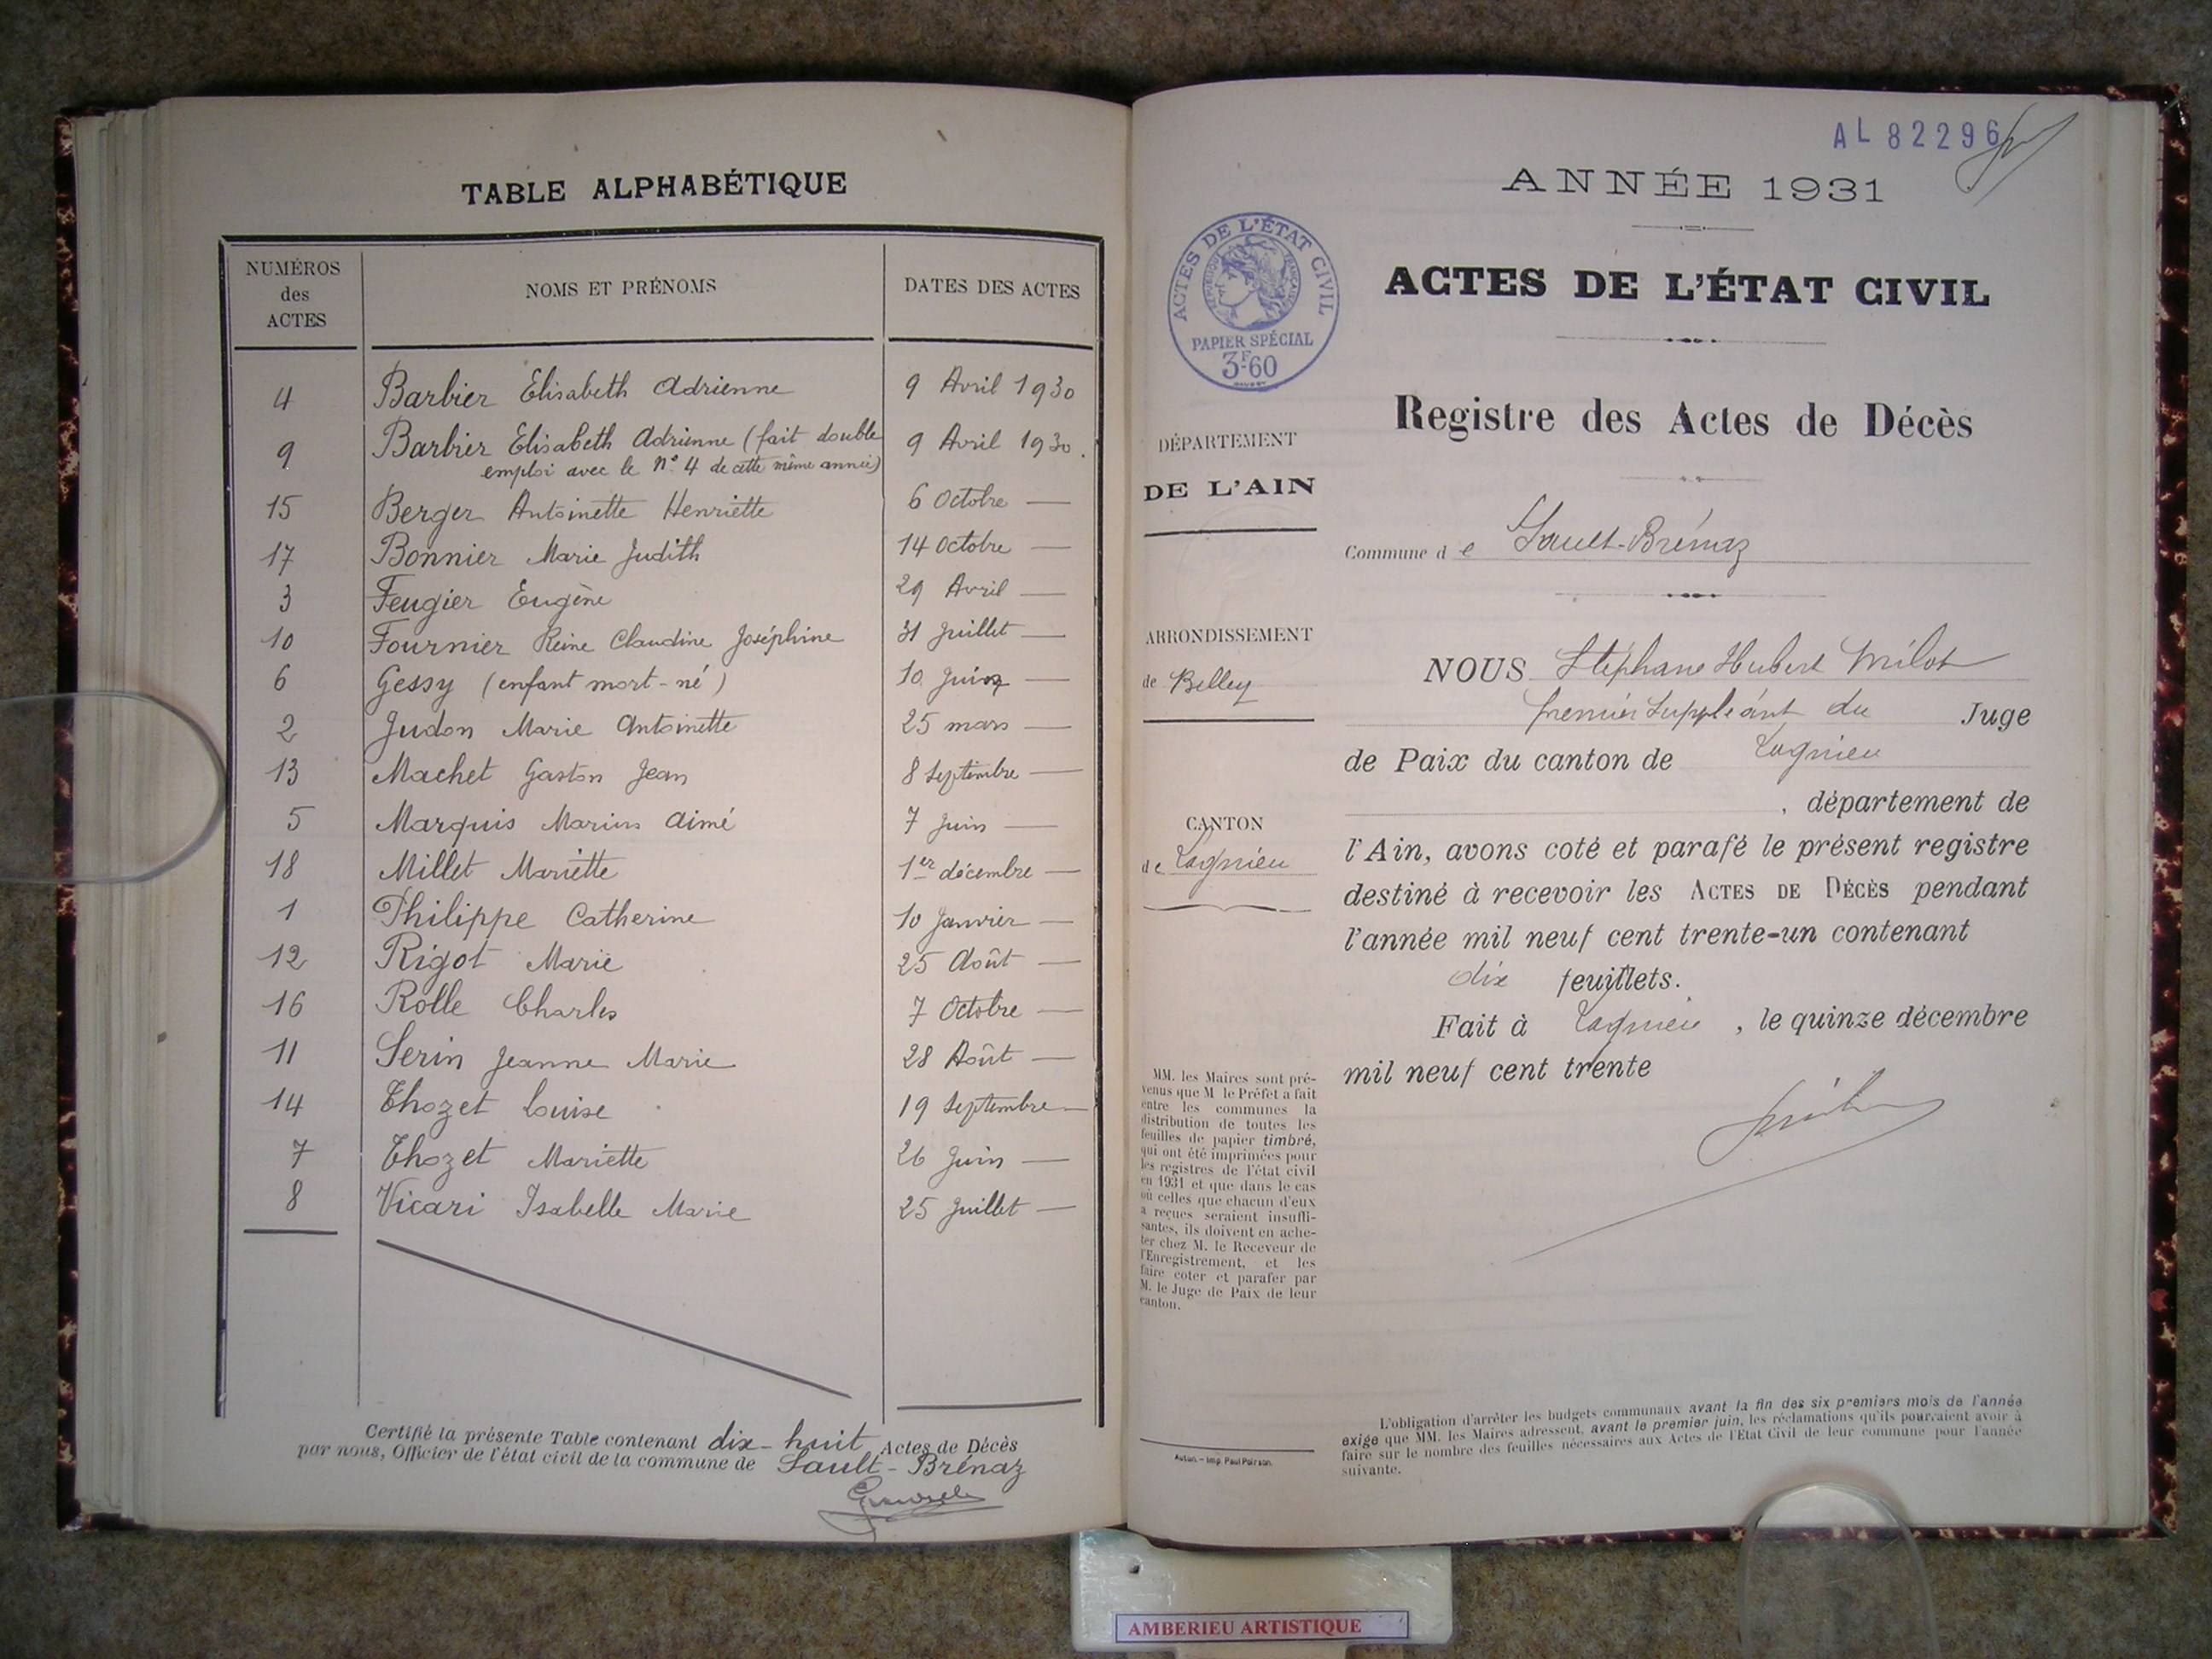 TABLE ALPHABÉTIQUE
NUMÉROS
des
ACTES
NOMS ET PRÉNOMS
DATES DES ACTES
4 Barbier Elisabeth Adrienne 9 Avril 1930
9 Barbier Elisabeth Adrienne (fait double 9 Avril 1930.
emploi avec le N° 4 de cette même année)
15 Berger Antoinette Henriette 6 Octobre —
17 Bonnier Marie Judith 14 Octobre —
3 Feugier Eugène 29 Avril —
10 Fournier Reine Claudine Joséphine 31 Juillet —
6 Gessy (enfant mort-né) 10 Juin —
2 Judon Marie Antoinette 25 mars —
13 Machet Gaston Jean 8 Septembre —
5 Marquis Marius Aimé 7 Juin —
18 Millet Mariette 1er décembre —
1 Philippe Catherine 10 Janvier —
12 Rigot Marie 25 Août —
16 Rolle Charles 7 Octobre —
11 Serin Jeanne Marie 28 Août —
14 Thozet Louise 19 Septembre —
7 Thozet Mariette 26 Juin —
8 Vicari Isabelle Marie 25 Juillet —
Certifié la présente Table contenant dix-huit Actes de Décès
par nous, Officier de l'état civil de la commune de Sault-Brénaz
AL 82296
ANNÉE 1931
ACTES DE L'ÉTAT CIVIL
RÉPUBLIQUE FRANÇAISE
PAPIER SPÉCIAL
3F60
ACTES DE L'ÉTAT CIVIL
Registre des Actes de Décès
DÉPARTEMENT
DE L'AIN
Commune de Sault-Brénaz
ARRONDISSEMENT
de Belley
CANTON
de Lagnieu
NOUS Stéphane Hubert Milot
premier suppléant du Juge
de Paix du canton de Lagnieu
, département de
l'Ain, avons coté et parafé le présent registre
destiné à recevoir les ACTES DE DÉCÈS pendant
l'année mil neuf cent trente-un contenant
dix feuillets.
Fait à Lagnieu, le quinze décembre
mil neuf cent trente
MM. les Maires sont pré-
venus que M le Préfet a fait
entre les communes la
distribution de toutes les
feuilles de papier timbré,
qui ont été imprimées pour
les registres de l'état civil
en 1931 et que dans le cas
où celles que chacun d'eux
a reçues seraient insuffi-
santes, ils doivent en ache-
ter chez M. le Receveur de
l'Enregistrement, et les
faire coter et parafer par
M. le Juge de Paix de leur
canton.
Autun. — Imp. Paul Poirson.
L'obligation d'arrêter les budgets communaux avant la fin des six premiers mois de l'année
exige que MM. les Maires adressent, avant le premier juin, les réclamations qu'ils pourraient avoir à
faire sur le nombre des feuilles nécessaires aux Actes de l'Etat Civil de leur commune pour l'année
suivante.
AMBERIEU ARTISTIQUE